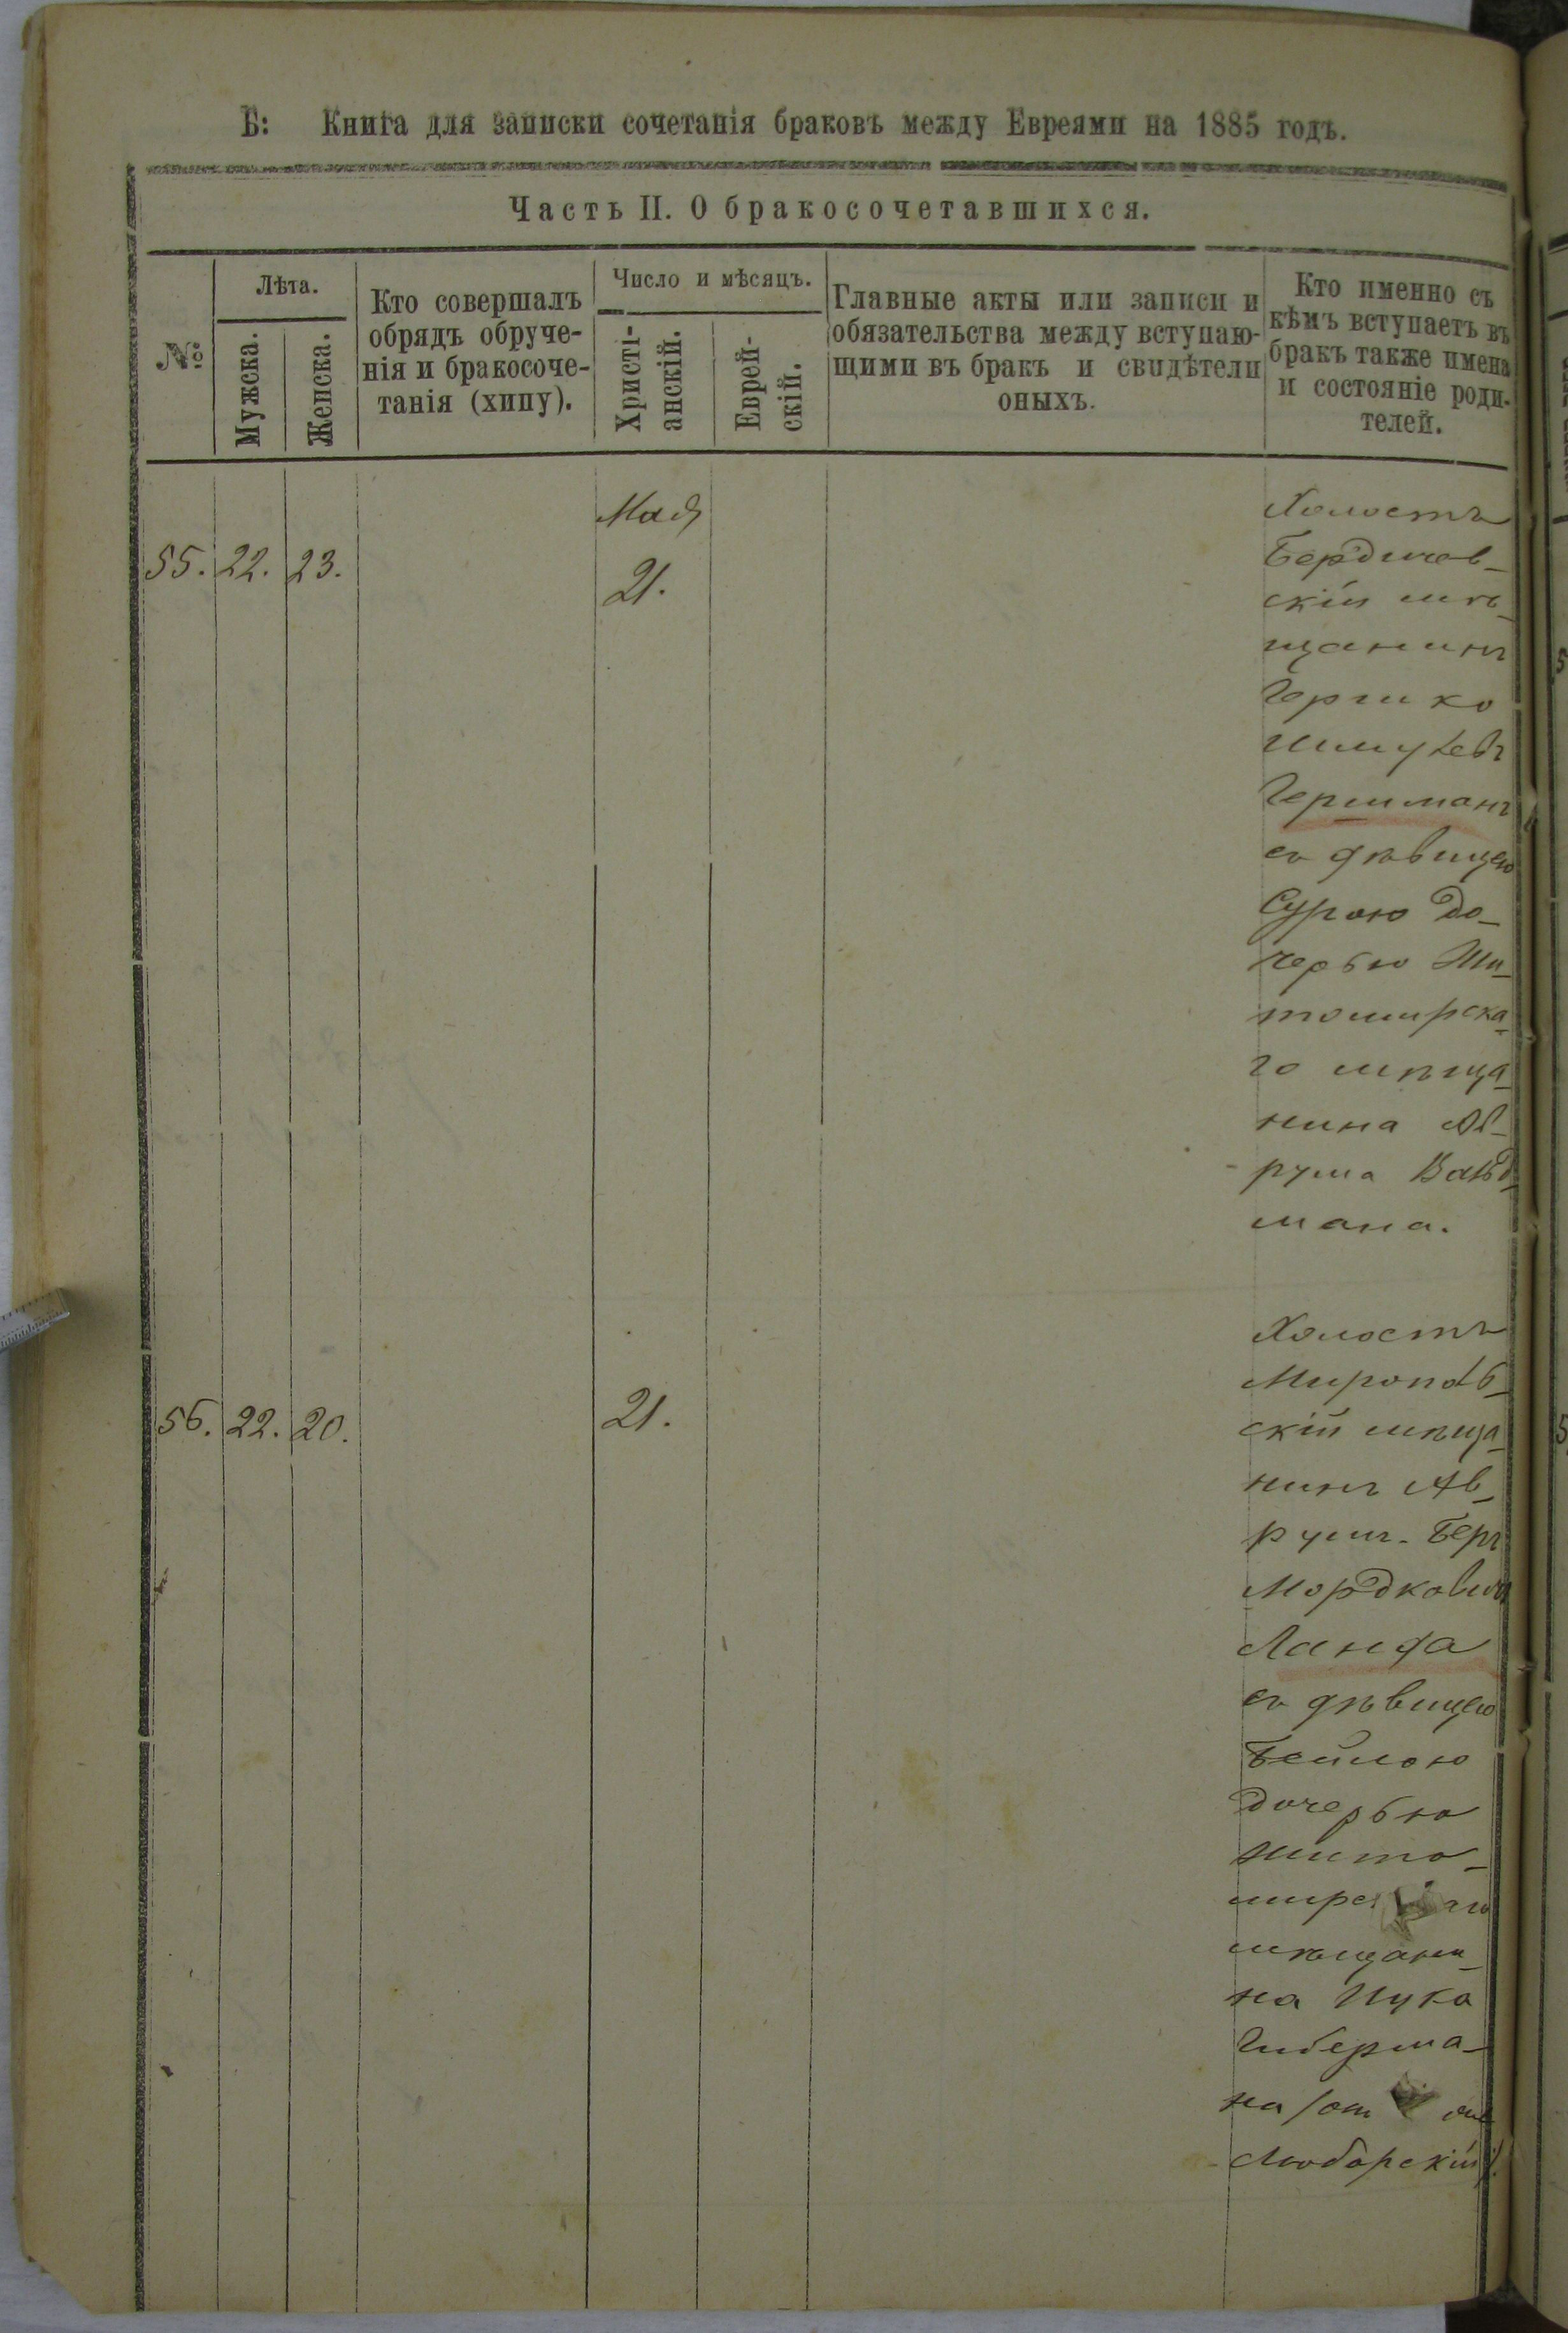 Б: Книга для записки сочетанія браковъ между Евреями на 1885 годъ.
Часть II. О бракосочетавшихся.
№
Лѣта.
Мужска.
Женска.
Кто совершалъ
обрядъ обруче-
нія и бракосоче-
танія (хипу).
Число и мѣсяцъ.
Христі-
анскій.
Еврей-
скій.
Главные акты или записи и
обязательства между вступаю-
щими въ бракъ и свидѣтели
оныхъ.
Кто именно съ
кѣмъ вступаетъ въ
бракъ также имена
и состояніе роди-
телей.
55. 22. 23.
Мая
21.
Холостъ
Бердичев-
скій мѣ-
щанинъ
Гершко
Гершманъ
съ дѣвицею
Сурою до-
черью Жи-
томирска-
го мѣща-
нина Ав-
рума Вальд-
мана.
56. 22. 20.
21.
Холостъ
Мирополь-
скій мѣща-
нинъ Ав-
румъ-Беръ
Мордковичъ
Ланда
съ дѣвицею
Бейлою
дочерью
Жито-
мирскаго
мѣщани-
на Ицка
Гиберма-
на /от
Любарскій/.